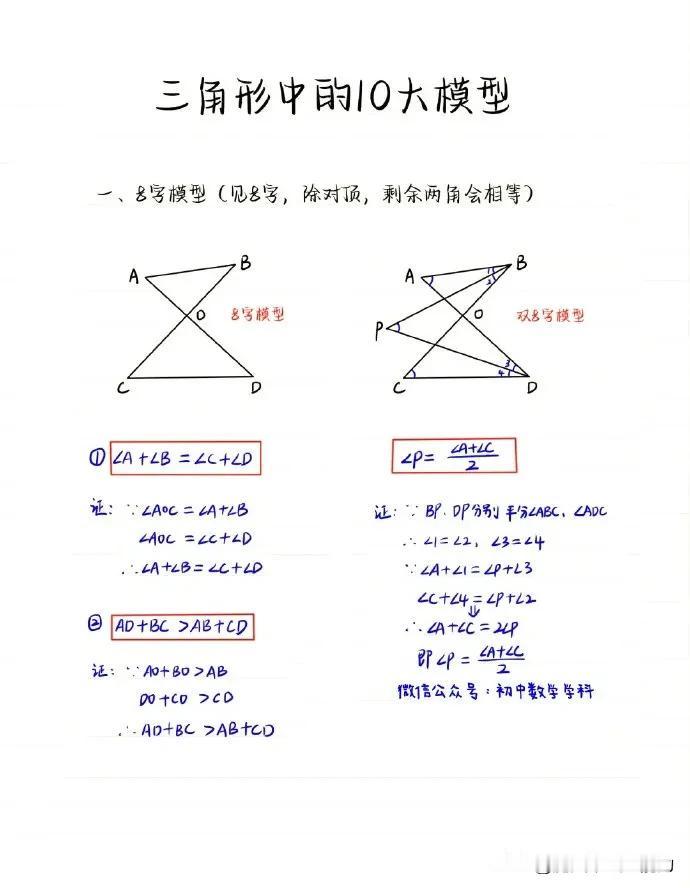 三角形中的10大模型
一、8字模型（见8字，除对顶，剩余两角会相等）
A
B
O
8字模型
C
D
A
B
1
2
O
双8字模型
P
3
4
C
D
① ∠A+∠B=∠C+∠D
证：∵∠AOC=∠A+∠B
∠AOC=∠C+∠D
∴∠A+∠B=∠C+∠D
② AD+BC>AB+CD
证：∵AO+BO>AB
DO+CO>CD
∴AD+BC>AB+CD
∠P=(∠A+∠C)/2
证：∵BP、DP分别平分∠ABC、∠ADC
∴∠1=∠2，∠3=∠4
∵∠A+∠1=∠P+∠3
∠C+∠4=∠P+∠2
⇓
∴∠A+∠C=2∠P
即∠P=(∠A+∠C)/2
微信公众号：初中数学学科